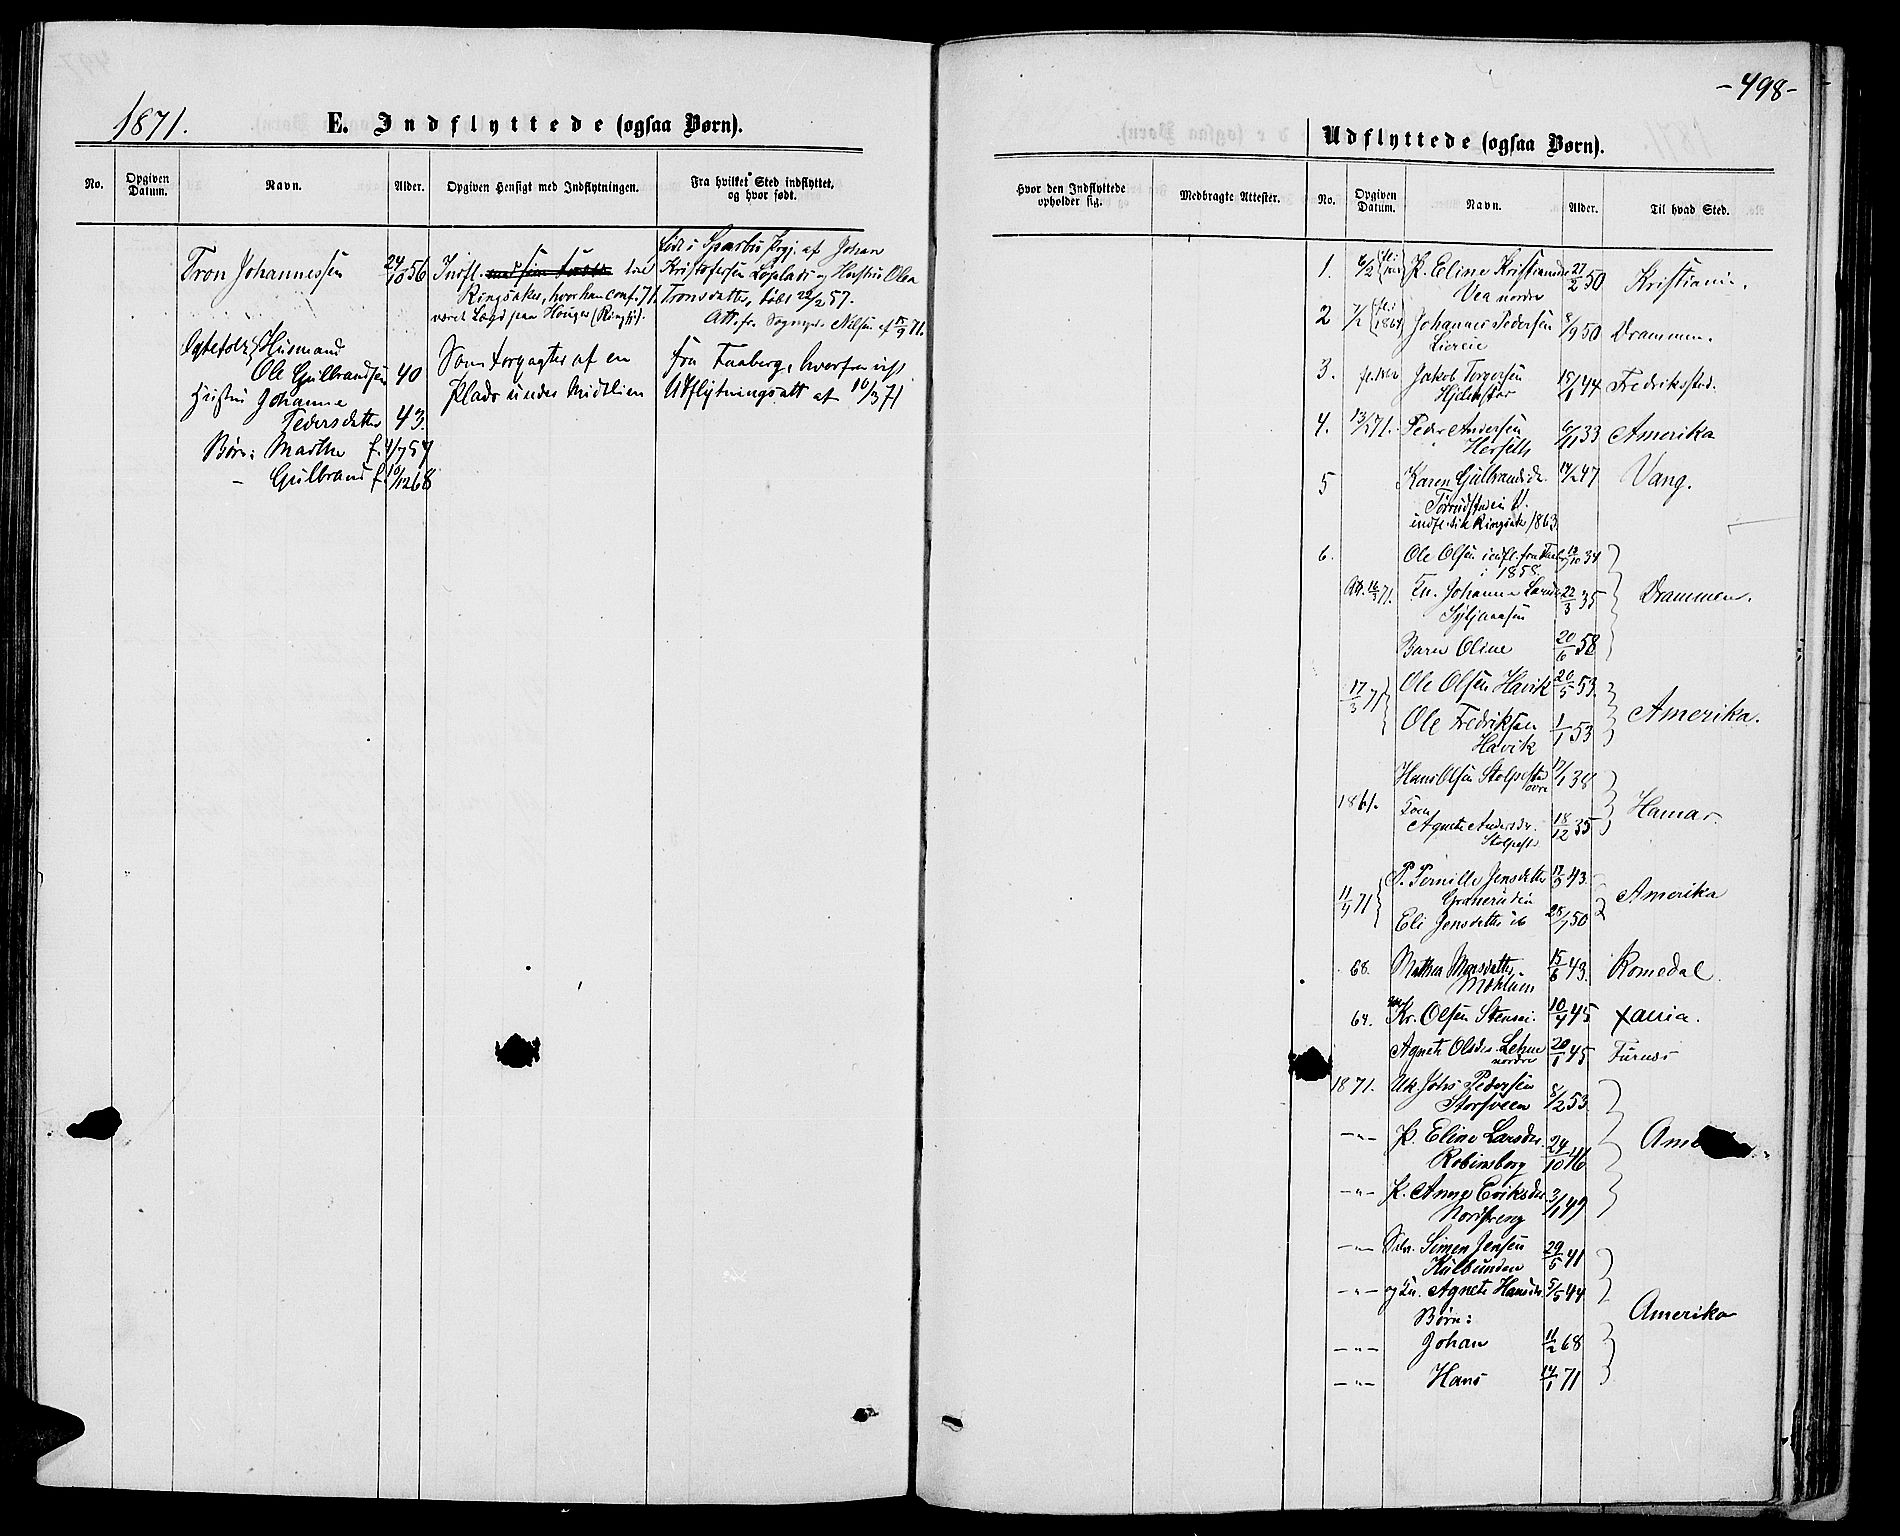 1871.
E. Indflyttede (ogsaa Børn).
No.
Opgiven Datum.
Navn.
Alder.
Opgiven Hensigt med Indflytningen.
Fra hvilket Sted indflyttet, og hvor født.
Tron Johannessen
24/10 56
Indfl. til
Ringsaker, hvor han conf. 71.
været Lægd paa
født i Sparbu Prgj. af Johan
Kristofersen og Hustru Olea
Tronsdatter, født 22/2 57.
Att. fra Sognepr. Nilsen af 15/9 71.
Husmand
Ole Gulbrandsen 40
Hustru Johanne
Pedersdatter 43.
Børn: Marthe f. 4/7 57
- Gulbrand f. 10/12 68
Som forpagter af en
Plads under Midtlien
fra Faaberg, hvorfra
Udflytningsatt af 10/3 71
-498-
Udflyttede (ogsaa Børn).
Hvor den Indflyttede opholder sig.
Medbragte Attester.
No.
Opgiven Datum.
Navn.
Alder.
Til hvad Sted.
1. 6/2 P. Eline Kristiansdr 27/2 50 Kristiania.
Vea nordre
2 7/2 Johannes Pedersen 8/9 50 Drammen.
Liereie
3. Jakob Torgersen 15/1 44 Fredriksstad.
Hjelmstad
4. 13/2 71. Peder Andersen 6/11 33 Amerika
Herseth
5 Karen Gulbrandsdr. 14/2 47 Vang.
indfl. til Ringsaker 1863
6. Ole Olsen indfl. fra Faaberg 10/10 34
i 1858.
Att. 16/3 71. Kn. Johanne Larsdr 22/3 35 Drammen.
Barn Oline 20/6 58
17/3 71 Ole Olsen Havik 20/5 53.
Ole Fredriksen 1/1 53 Amerika.
Havik
Hans Olsen Stolpestad 17/1 38
øvre
1861. Hamar.
Agnete Andersdr. 18/12 35
Stolpest
11/4 71 P. Pernille Jensdatter 17/9 43. Amerika
Granerudeie
Eli Jensdatter ib 28/7 50
68. Mathea Monsdatter 15/6 43. Romedal.
64. Kr. Olsen Stensei. 10/4 45 Xania.
Agnete Olsdr. Lehne 20/1 45 Furnes
nordre
1871. Uk. Johs Pedersen 8/2 53.
Storsveen
-"- P. Eline Larsdr. 24/10 46 Ame
Robinsborg
-"- P. Anne Eriksdr. 3/1 49
Nordseng
-"- Selv. Simen Jensen 29/5 41
Kulbunden
-"- og Kn. Agnete Hansdr. 5/5 44
Amerika
Børn:
-"- Johan 11/2 68
-"- Hans 14/1 71